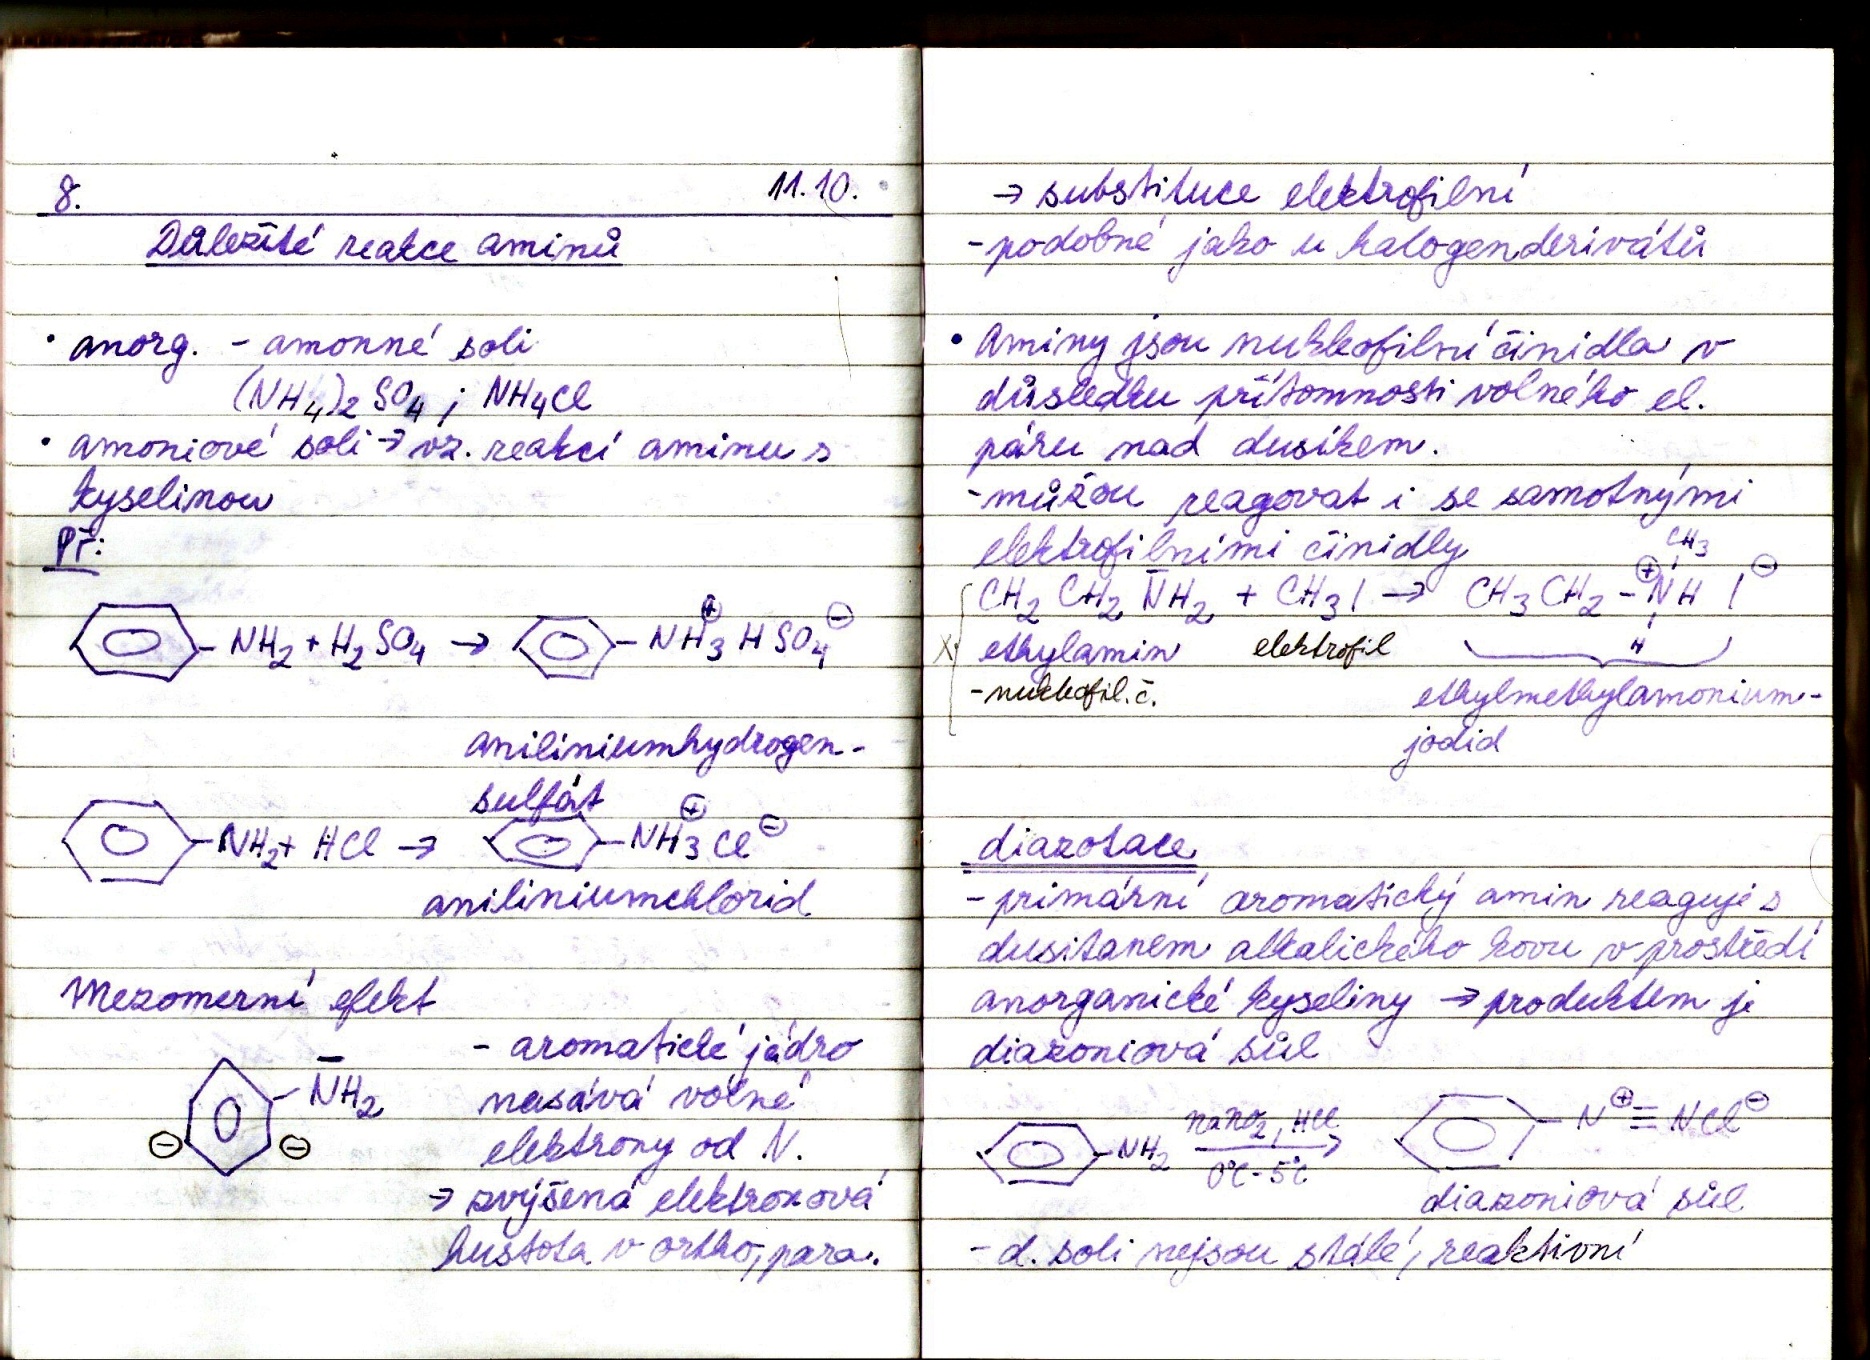 8. 11.10.
Důležité reakce aminů
• anorg. - amonné soli
(NH4)2 SO4 ; NH4Cl
• amoniové soli → vz. reakcí aminu s
kyselinou
Př:
-NH2 + H2SO4 → -NH3⊕ HSO4⊖
aniliniumhydrogen-
sulfát
-NH2 + HCl → -NH3⊕ Cl⊖
aniliniumchlorid
Mezomerní efekt
- aromatické jádro
N̄H2
nasává volné
⊖ ⊖
elektrony od N.
→ zvýšená elektronová
hustota v ortho, para.
→ substituce elektrofilní
- podobné jako u halogenderivátů
• Aminy jsou nukleofilní činidla v
důsledku přítomnosti volného el.
páru nad dusíkem.
- můžou reagovat i se samotnými
elektrofilními činidly
CH3
CH2 CH2 N̄H2 + CH3I → CH3CH2 - ⊕NH I⊖
H
ethylamin elektrofil
- nukleofil. č. ethylmethylamonium-
jodid
diazotace
- primární aromatický amin reaguje s
dusitanem alkalického kovu v prostředí
anorganické kyseliny → produktem je
diazoniová sůl
-NH2 NaNO2, HCl → 0°C - 5°C -N⊕≡NCl⊖
diazoniová sůl
- d. soli nejsou stálé, reaktivní